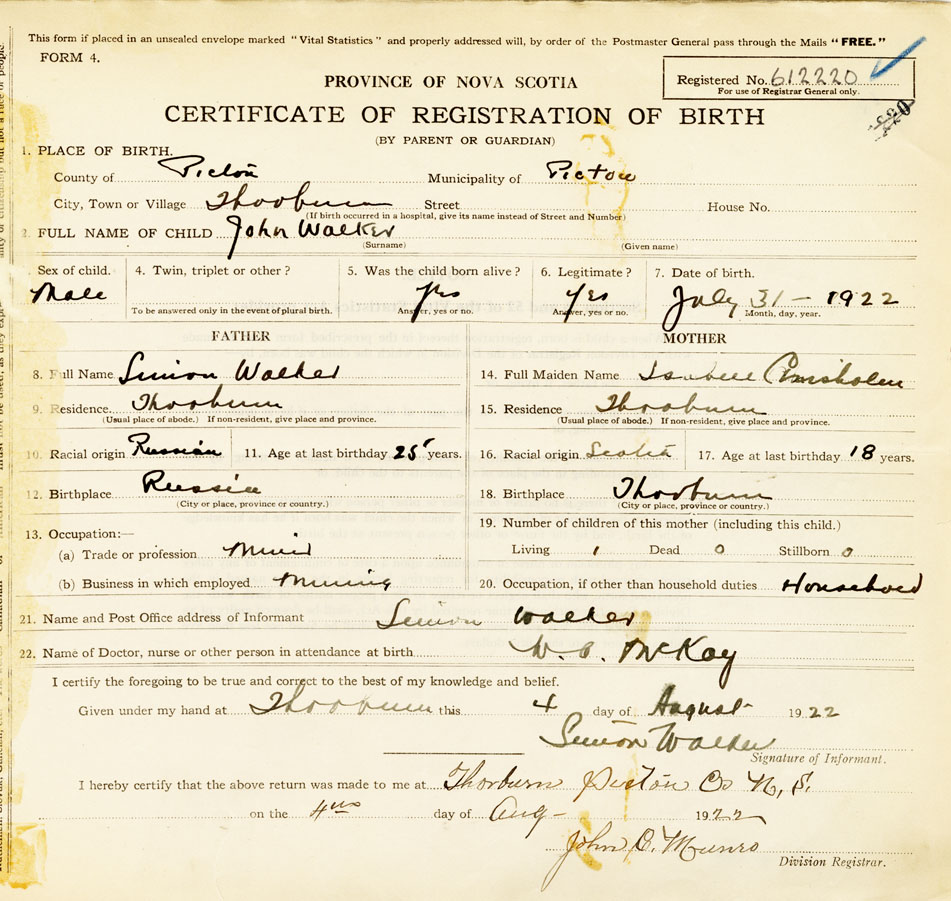 This form if placed in an unsealed envelope marked "Vital Statistics" and properly addressed will, by order of the Postmaster General pass through the Mails "FREE."
FORM 4.
Registered No. 612220
For use of Registrar General only.
PROVINCE OF NOVA SCOTIA
CERTIFICATE OF REGISTRATION OF BIRTH
220
(BY PARENT OR GUARDIAN)
1. PLACE OF BIRTH.
County of Pictou Municipality of Pictou
City, Town or Village Thorburn Street House No.
(If birth occurred in a hospital, give its name instead of Street and Number)
2. FULL NAME OF CHILD John Walker
(Surname) (Given name)
Sex of child. 4. Twin, triplet or other? 5. Was the child born alive? 6. Legitimate? 7. Date of birth.
Male yes yes July 31 - 1922
To be answered only in the event of plural birth. Answer, yes or no. Answer, yes or no. Month, day, year.
FATHER MOTHER
8. Full Name Simon Walker 14. Full Maiden Name Isabell Chisholm
9. Residence Thorburn 15. Residence Thorburn
(Usual place of abode.) If non-resident, give place and province. (Usual place of abode.) If non-resident, give place and province.
10. Racial origin Russian 11. Age at last birthday 25 years. 16. Racial origin Scotia 17. Age at last birthday 18 years.
12. Birthplace Russia 18. Birthplace Thorburn
(City or place, province or country.) (City or place, province or country.)
13. Occupation:— 19. Number of children of this mother (including this child.)
(a) Trade or profession Living 1 Dead 0 Stillborn 0
(b) Business in which employed Mining 20. Occupation, if other than household duties Household
21. Name and Post Office address of Informant Simon Walker
22. Name of Doctor, nurse or other person in attendance at birth McKay
I certify the foregoing to be true and correct to the best of my knowledge and belief.
Given under my hand at Thorburn this 4 day of August 1922
Simon Walker
Signature of Informant.
I hereby certify that the above return was made to me at Thorburn Pictou Co N.S.
on the 4th day of Aug - 1922
John C. Munro
Division Registrar.